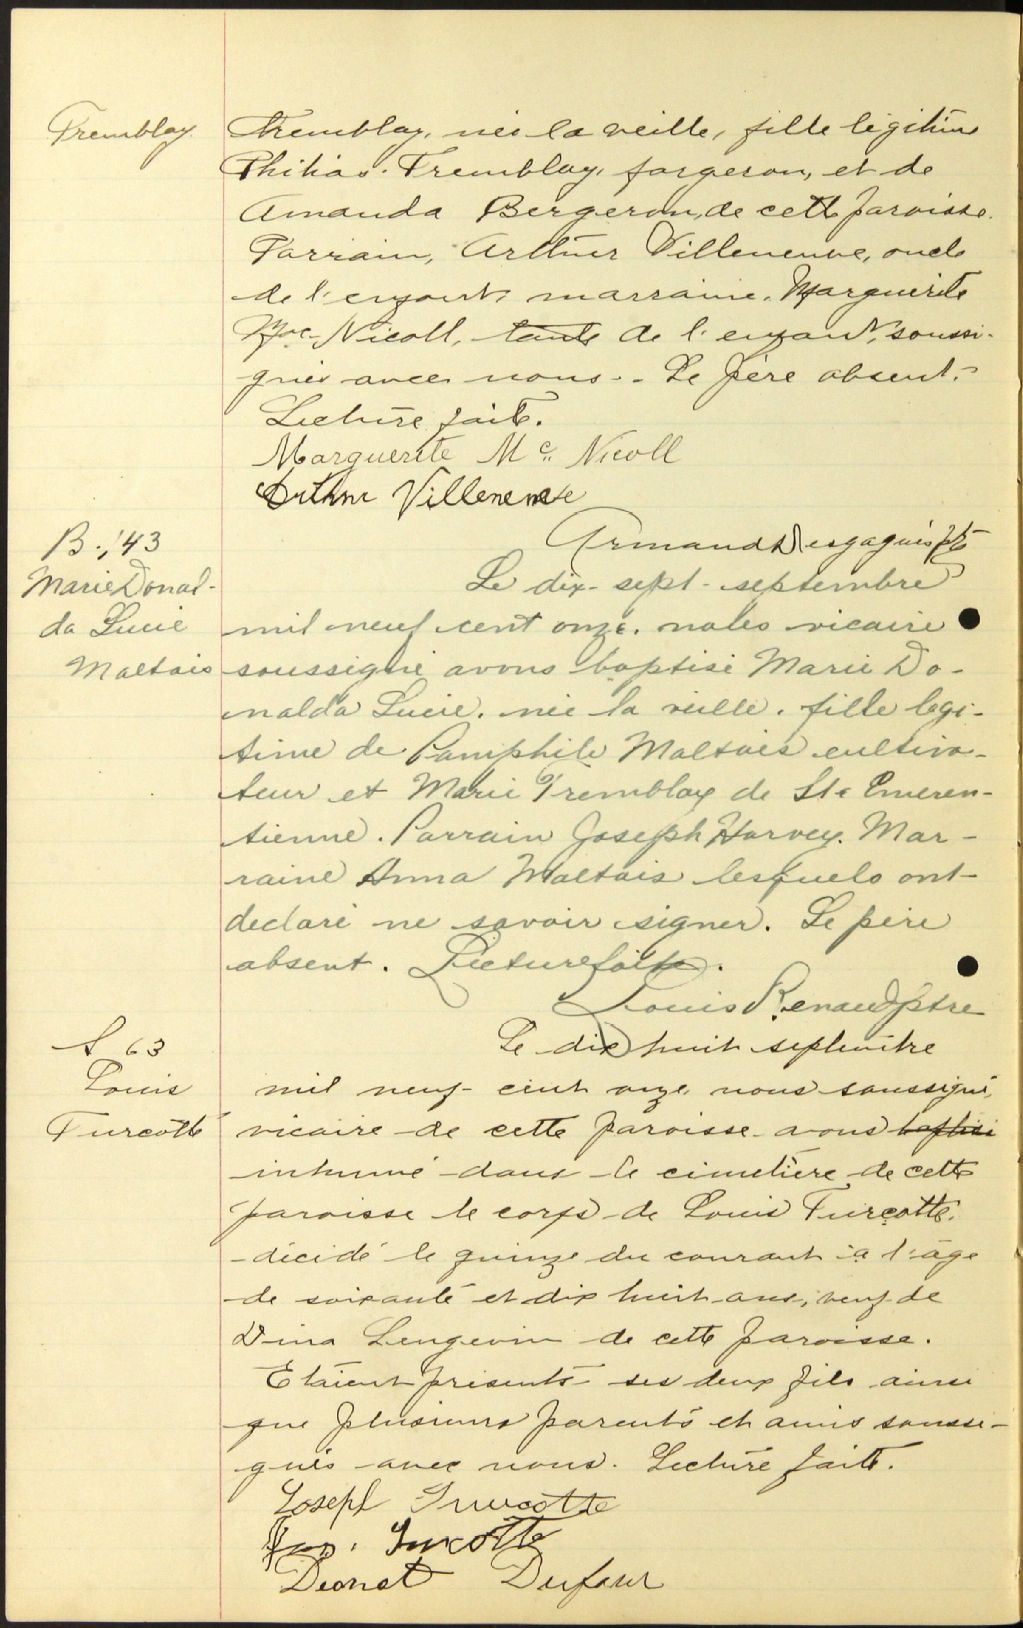 Tremblay
Tremblay, née la veille, fille légitime
Philias Tremblay, forgeron, et de
Amanda Bergeron, de cette paroisse.
Parrain, Arthur Villeneuve, oncle
de l'enfant, marraine, Marguerite
Mc Nicoll, tante de l'enfant, soussi-
gnés avec nous. Le père absent.
Lecture faite.
Marguerite Mc Nicoll
Arthur Villeneuve
Armand Desgagnés ptre
B. 143
Marie Donal-
da Lucie
Maltais
Le dix-sept-septembre
mil neuf cent onze. nous vicaire
soussigné avons baptisé Marie Do-
nalda Lucie. née la veille. fille légi-
time de Pamphile Maltais cultiva-
teur et Marie Tremblay de Ste Emeren-
tienne. Parrain Joseph Harvey. Mar-
raine Anna Maltais lesquels ont
declaré ne savoir signer. Le père
absent. Lecture faite.
Louis Renaud ptre
S 63
Louis
Turcotte
Le dix huit septembre
mil neuf cent onze nous soussigné,
vicaire de cette paroisse avons baptisé
inhumé dans le cimetière de cette
paroisse le corps de Louis Turcotte,
décédé le quinze du courant à l'âge
de soixante et dix huit ans, veuf de
Dina Lengevin de cette paroisse.
Etaient présents ses deux fils ainsi
que plusieurs parents et amis soussi-
gnés avec nous. Lecture faite.
Joseph Turcotte
Turcotte
Deonat Dufour